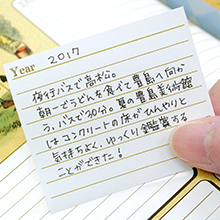 Year 2017
夜行バスで高松。
朝一でうどんを食べて豊島へ向か
う。バスで30分。夏の豊島美術館
はコンクリートの床がひんやりと
気持ちよく、ゆっくり鑑賞する
ことができた！